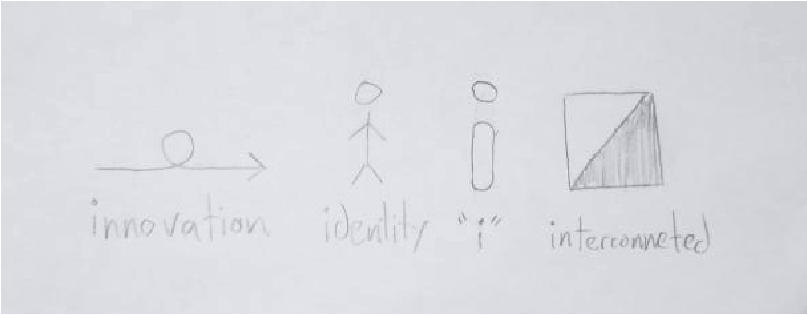 innovation identity "i" interconneted